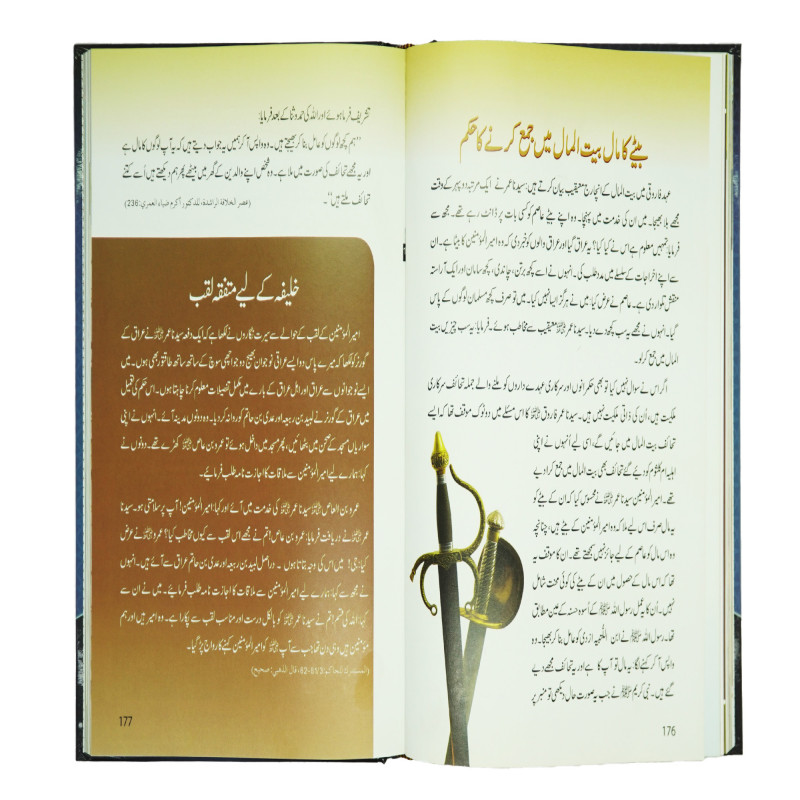 بیٹے کا مال بیت المال میں جمع کرنے کا حکم
عہدِ فاروقی میں بیت المال کے انچارج معیقیب بیان کرتے ہیں، سیدنا عمر ﷜ نے ایک مرتبہ دوپہر کے وقت
مجھے بلا بھیجا۔ میں ان کی خدمت میں پہنچا۔ وہ اپنے بیٹے عاصم کو کسی بات پر ڈانٹ رہے تھے۔ مجھ سے
فرمایا: تمہیں معلوم ہے اس نے کیا کیا؟ یہ عراق گیا اور عراق والوں کو خبر دی کہ وہ امیر المؤمنین کا بیٹا ہے۔ ان
سے اپنے اخراجات کے سلسلے میں مدد طلب کی۔ انہوں نے اسے کچھ برتن، چاندی، کچھ سامان اور ایک آراستہ
منقش تلوار دی ہے۔ عاصم نے عرض کیا: میں نے ہرگز ایسا نہیں کیا۔ میں تو صرف کچھ مسلمان لوگوں کے پاس
گیا۔ انہوں نے مجھے یہ سب کچھ دے دیا۔ سیدنا عمر ﷜ معیقیب سے مخاطب ہوئے۔ فرمایا: یہ سب چیزیں بیت
المال میں جمع کر لو۔
اگر اس نے سوال نہیں کیا تو بھی حکمرانوں اور سرکاری عہدے داروں کو ملنے والے جملہ تحائف سرکاری
ملکیت ہیں، اُن کی ذاتی ملکیت نہیں ہیں۔ سیدنا عمر فاروق ﷜ کا اس مسئلے میں دو ٹوک موقف تھا کہ ایسے
تحائف بیت المال میں جائیں گے، اسی لیے اُنہوں نے اپنی
اہلیہ ام کلثوم کو دیے گئے تحائف بھی بیت المال میں جمع کرا دیے
تھے۔ امیر المؤمنین سیدنا عمر ﷜ نے محسوس کیا کہ ان کے بیٹے کو
یہ مال صرف اس لیے ملا کہ وہ امیر المؤمنین کے بیٹے ہیں، چنانچہ
وہ اس مال کو عاصم کے لیے جائز نہیں سمجھتے تھے۔ ان کا موقف یہ
تھا کہ اس مال کے حصول میں ان کے بیٹے کی کوئی محنت شامل
نہیں۔ اُن کا یہ عمل رسول اللہ ﷺ کے اُسوہ حسنہ کے عین مطابق
تھا۔ رسول اللہ ﷺ نے ابن اللُّتبیہ ازدی کو عامل بنا کر بھیجا۔ وہ
واپس آ کر کہنے لگا: یہ مال تو آپ کا ہے اور یہ تحائف مجھے دیے
گئے ہیں۔ نبی کریم ﷺ نے جب یہ صورت حال دیکھی تو منبر پر
176
تشریف فرما ہوئے اور اللہ کی حمد و ثنا کے بعد فرمایا:
’’ہم کچھ لوگوں کو عامل بنا کر بھیجتے ہیں۔ وہ واپس آ کر ہمیں یہ جواب دیتے ہیں کہ یہ آپ لوگوں کا مال ہے
اور یہ مجھے تحائف کی صورت میں ملا ہے۔ وہ شخص اپنے والدین کے گھر میں بیٹھے پھر ہم دیکھتے ہیں اُسے کتنے
تحائف ملتے ہیں‘‘۔
(عصر الخلافة الراشدة، للدکتور أکرم ضیاء العمري: 236)
خلیفہ کے لیے متفقہ لقب
امیر المؤمنین کے لقب کے حوالے سے سیرت نگاروں نے لکھا ہے کہ ایک دفعہ سیدنا عمر ﷜ نے عراق کے
گورنر کو لکھا کہ میرے پاس دو ایسے عراقی نوجوان بھیج دو جو اچھی سوچ کے ساتھ ساتھ طاقتور بھی ہوں۔ میں
ایسے نوجوانوں سے عراق اور اہل عراق کے بارے میں مکمل تفصیلات معلوم کرنا چاہتا ہوں۔ اس حکم کی تعمیل
میں عراق کے گورنر نے لبید بن ربیعہ اور عدی بن حاتم کو روانہ کر دیا۔ وہ دونوں مدینہ آئے۔ انہوں نے اپنی
سواریاں مسجد کے صحن میں بٹھائیں، پھر مسجد میں داخل ہوئے تو عمرو بن عاص ﷜ کھڑے تھے۔ دونوں نے
کہا: ہمارے لیے امیر المؤمنین سے ملاقات کا اجازت نامہ طلب فرمائیے۔
عمرو بن العاص ﷜ سیدنا عمر ﷜ کی خدمت میں آئے اور کہا: امیر المؤمنین! آپ پر سلامتی ہو۔ سیدنا
عمر ﷜ نے دریافت فرمایا: عمرو بن عاص! تم نے مجھے اس لقب سے کیوں مخاطب کیا؟ عمرو ﷜ نے عرض
کیا: جی! میں اس کی وجہ بتاتا ہوں۔ دراصل لبید بن ربیعہ اور عدی بن حاتم عراق سے آئے ہیں۔ انہوں
نے مجھ سے کہا: ہمارے لیے امیر المؤمنین سے ملاقات کا اجازت نامہ طلب فرمائیے۔ میں نے ان سے
کہا: اللہ کی قسم! تم نے سیدنا عمر ﷜ کو بالکل درست اور مناسب لقب سے پکارا ہے۔ وہ امیر ہیں اور ہم
مؤمنین ہیں۔ وہی دن تھا جب سے آپ ﷜ کو امیر المؤمنین کہنے کا رواج پڑ گیا۔
(المستدرك للحاکم: 81/3-82، قال الذهبي: صحیح)
177